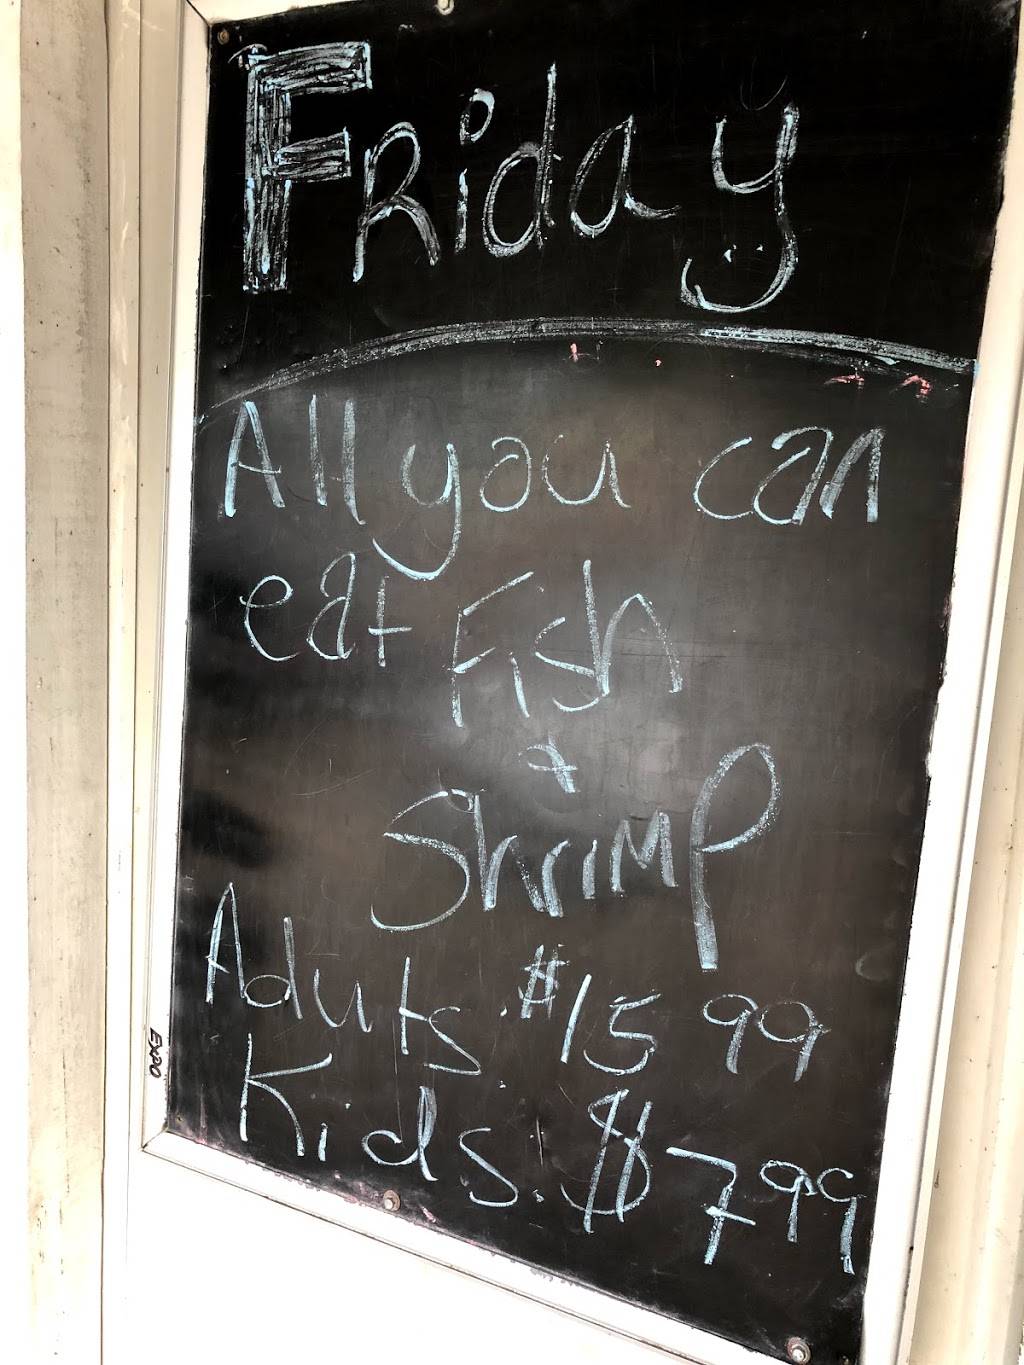 Friday
All you can
eat Fish
&
Shrimp
Aduts: $15 99
Kids: $7 99
EXPO